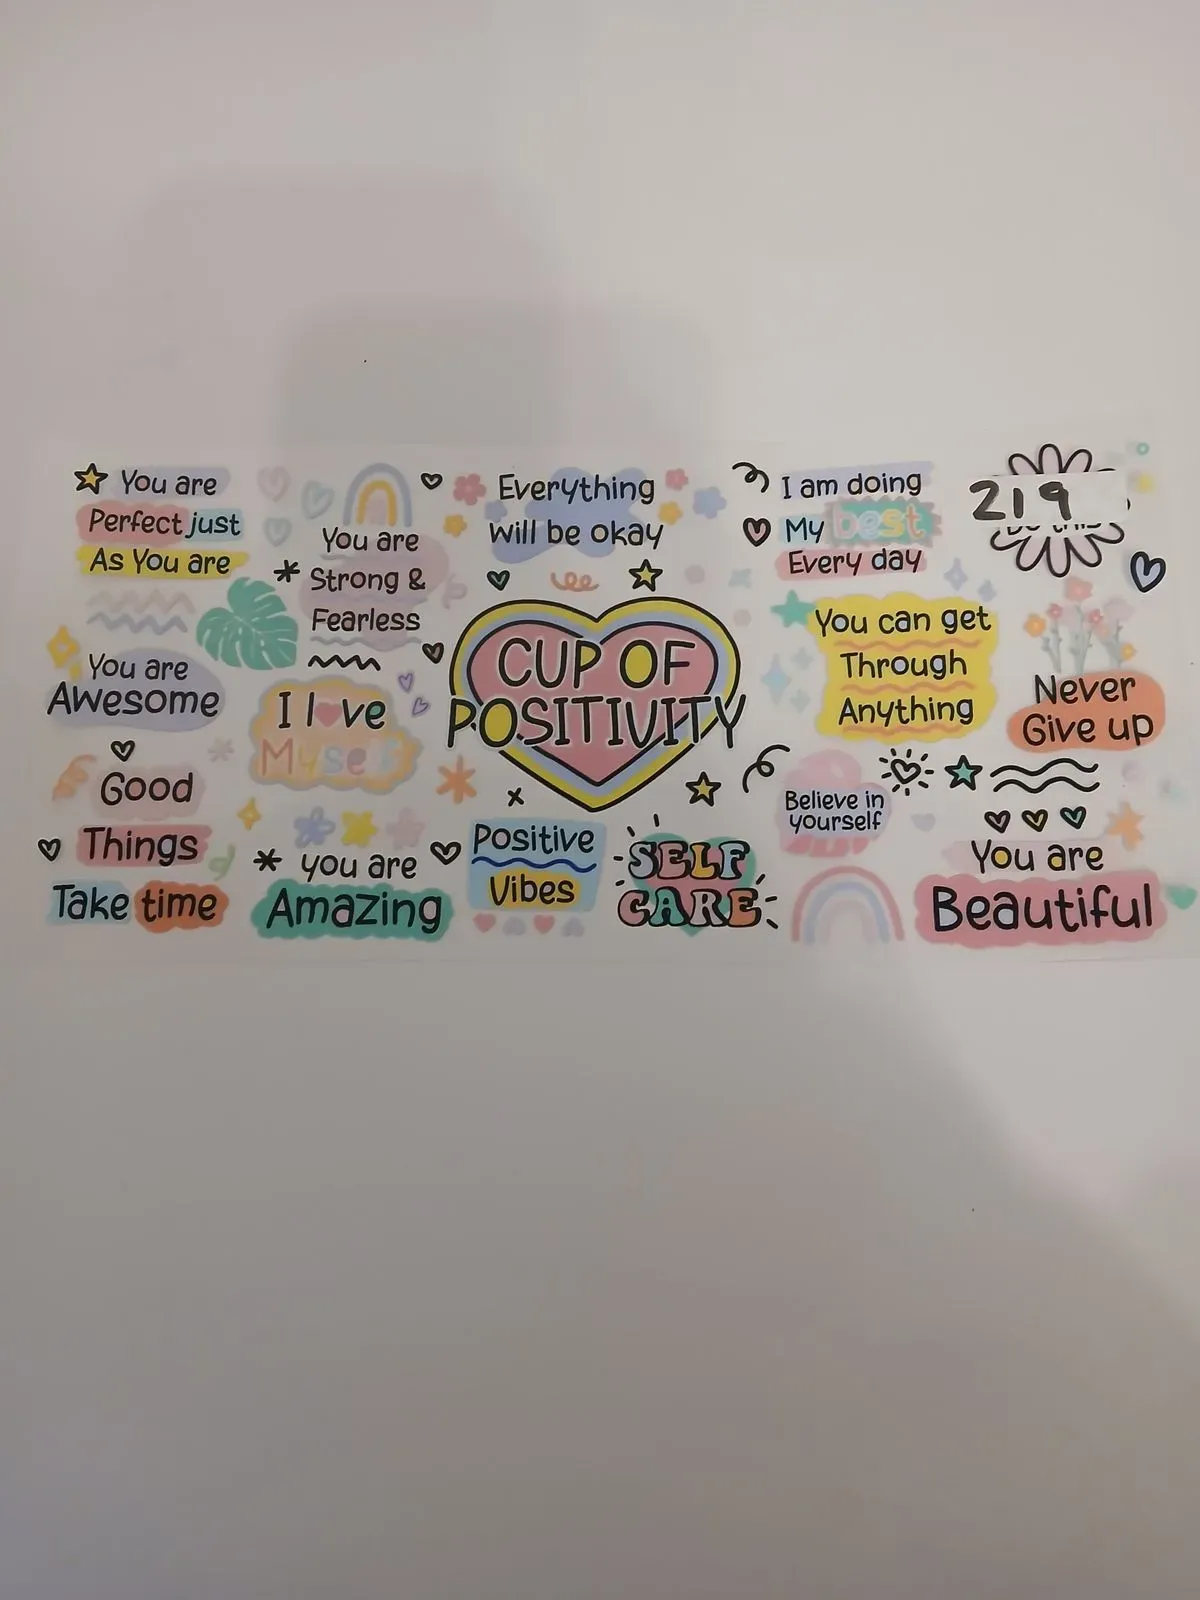 You are
Perfect just
As You are
You are
Strong &
Fearless
Everything
Will be okay
I am doing
My best
Every day
219
You are
Awesome
I love
Myself
CUP OF
POSITIVITY
You can get
Through
Anything
Never
Give up
Good
Things
Take time
you are
Amazing
Positive
Vibes
SELF
CARE
Believe in
yourself
You are
Beautiful